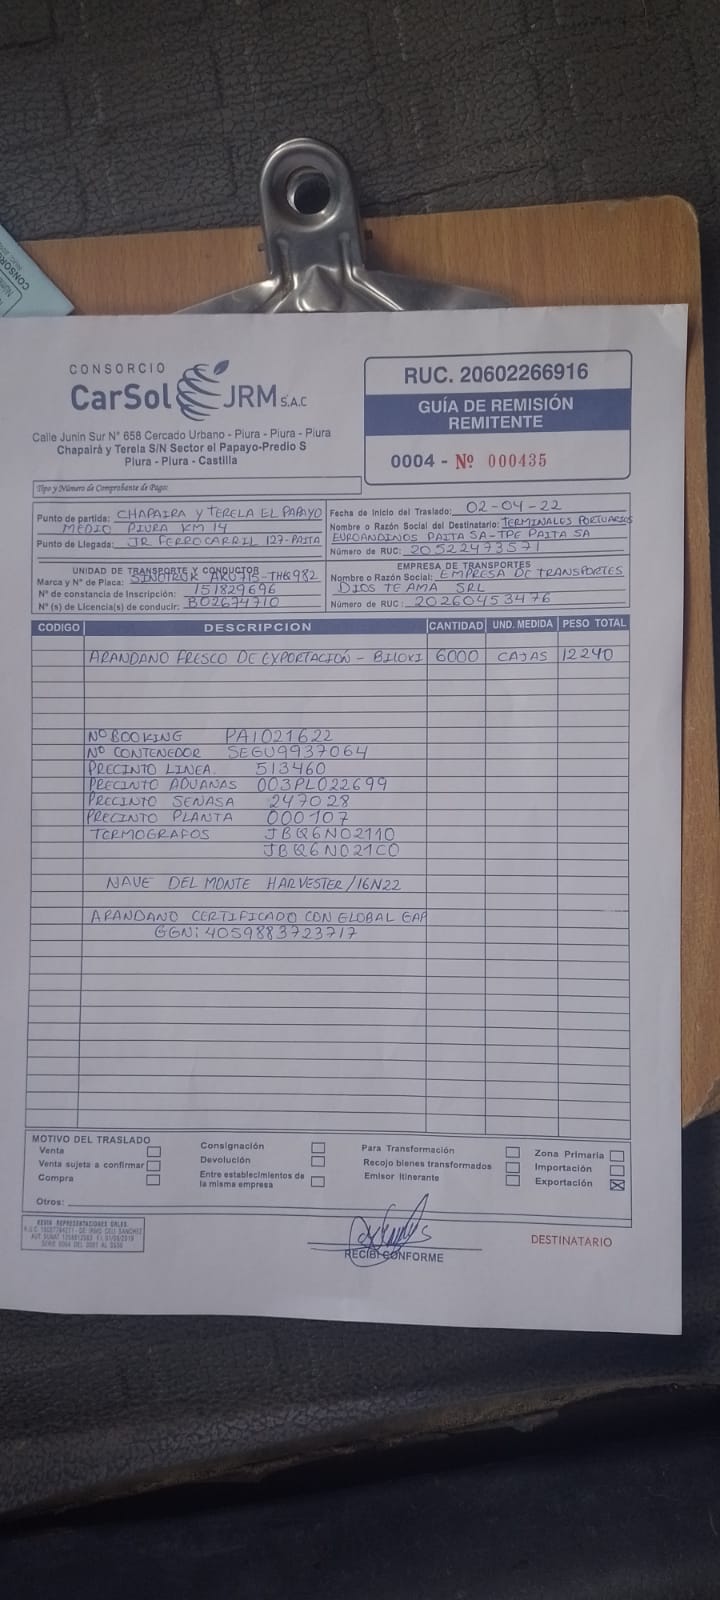 CONSORCIO
CarSol JRM S.A.C
Calle Junin Sur N° 658 Cercado Urbano - Piura - Piura - Piura
Chapairá y Terela S/N Sector el Papayo-Predio S
Piura - Piura - Castilla
RUC. 20602266916
GUÍA DE REMISIÓN
REMITENTE
0004 - Nº 000435
Tipo y Número de Comprobante de Pago:
Punto de partida: CHAPAIRA Y TERELA EL PAPAYO
MEDIO PIURA KM 14
Punto de Llegada: JR FERROCARRIL 127-PAITA
Fecha de Inicio del Traslado: 02-04-22
Nombre o Razón Social del Destinatario: TERMINALES PORTUARIOS
EUROANDINOS PAITA SA-TPE PAITA SA
Número de RUC: 20522473571
UNIDAD DE TRANSPORTE Y CONDUCTOR
Marca y N° de Placa: SINOTRUK THG982
N° de constancia de Inscripción: 151829696
N° (s) de Licencia(s) de conducir: B02674710
EMPRESA DE TRANSPORTES
Nombre o Razón Social: EMPRESA DE TRANSPORTES
DIOS TE AMA SRL
Número de RUC: 20260453476
CODIGO DESCRIPCION CANTIDAD UND. MEDIDA PESO TOTAL
ARANDANO FRESCO DE EXPORTACIÓN - BILOXI 6000 CAJAS 12240
Nº BOOKING PAI021622
Nº CONTENEDOR SEGU9937064
PRECINTO LINEA. 513460
PRECINTO ADUANAS 003PL022699
PRECINTO SENASA 247028
PRECINTO PLANTA 000107
TERMOGRAFOS JBQ6N02110
JBQ6N021C0
NAVE DEL MONTE HARVESTER/16N22
ARANDANO CERTIFICADO CON GLOBAL GAP
GGN: 4059883723717
MOTIVO DEL TRASLADO
Venta
Venta sujeta a confirmar
Compra
Consignación
Devolución
Entre establecimientos de
la misma empresa
Para Transformación
Recojo bienes transformados
Emisor Itinerante
Zona Primaria
Importación
Exportación
Otros:
KEVIN REPRESENTACIONES GRLES.
RECIBI CONFORME
DESTINATARIO